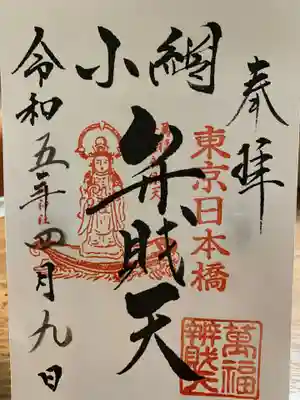 奉拝
東京日本橋
小網
弁財天
萬福
辨財天
令和五年四月九日